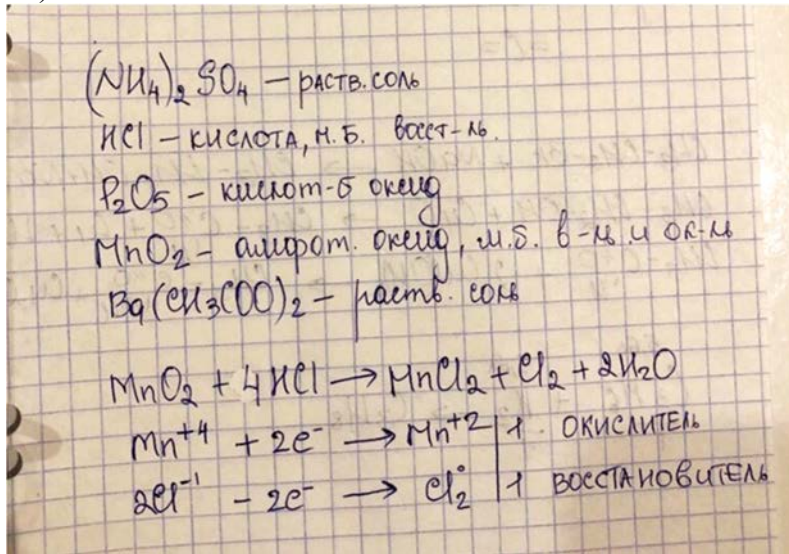 (NH₄)₂SO₄ – раств. соль
HCl – кислота, м.б. восст-ль.
P₂O₅ – кислот-б оксид
MnO₂ – амфот. оксид, м.б. в-ль и ок-ль
Ba(CH₃COO)₂ – раств. соль
MnO₂ + 4HCl → MnCl₂ + Cl₂ + 2H₂O
Mn⁺⁴ + 2e⁻ → Mn⁺² | 1 ОКИСЛИТЕЛЬ
2Cl⁻¹ – 2e⁻ → Cl₂⁰ | 1 ВОССТАНОВИТЕЛЬ